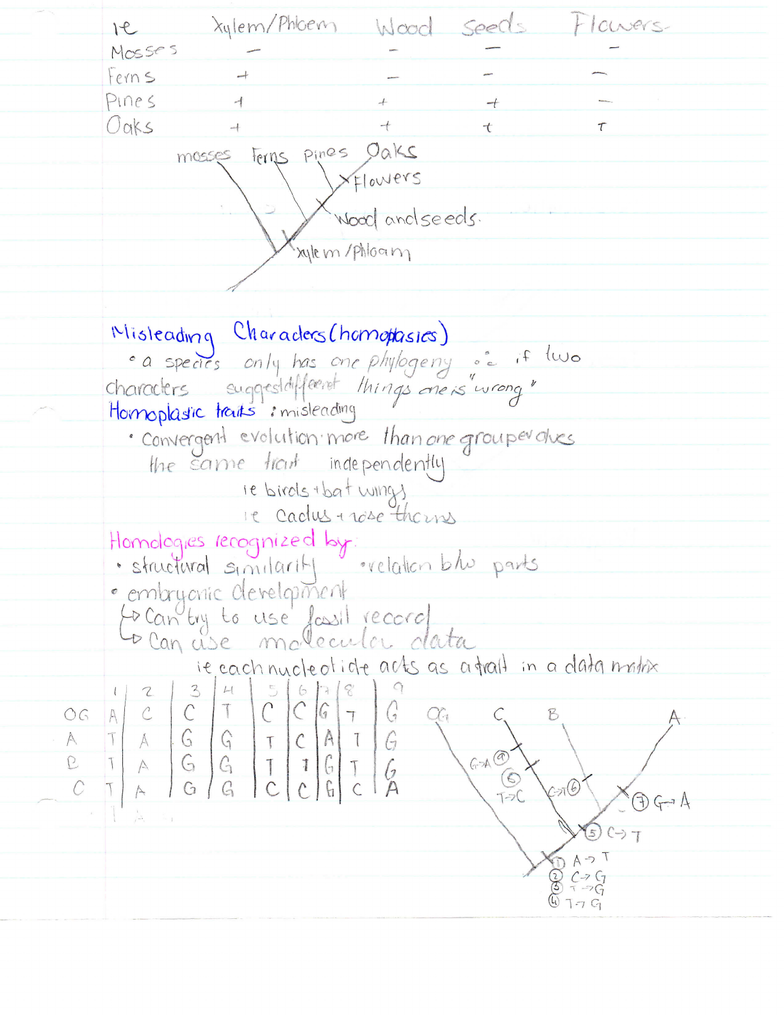 ie Xylem/Phloem Wood Seeds Flowers
Mosses - - - -
Ferns + - - -
Pines + + + -
Oaks + + + +
mosses Ferns pines Oaks
Flowers
Wood and seeds.
xylem/Phloam
Misleading Characters (homoplasies)
• a species only has one phylogeny ∴ if two
characters suggest different things one is "wrong"
Homoplastic traits : misleading
• Convergent evolution: more than one group evolves
the same trait independently
ie birds + bat wings
ie Cactus + rose thorns
Homologies recognized by:
• structural similarity • relation b/w parts
• embryonic development
↳ Can try to use fossil record
↳ Can use molecular data
ie each nucleotide acts as a trait in a data matrix
1 2 3 4 5 6 7 8 9
OG A C C T C C G T G
A T A G G T C A T G
B T A G G T T G T G
C T A G G C C G C A
OG C B A
G→A ⑨
⑧
T→C
C→T ⑥
⑦ G→A
⑤ C→T
① A→T
② C→G
③ T→G
④ T→G